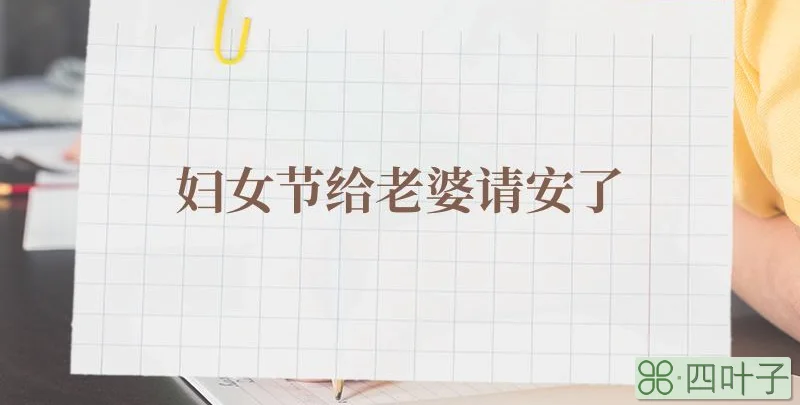 妇女节给老婆请安了
四叶子